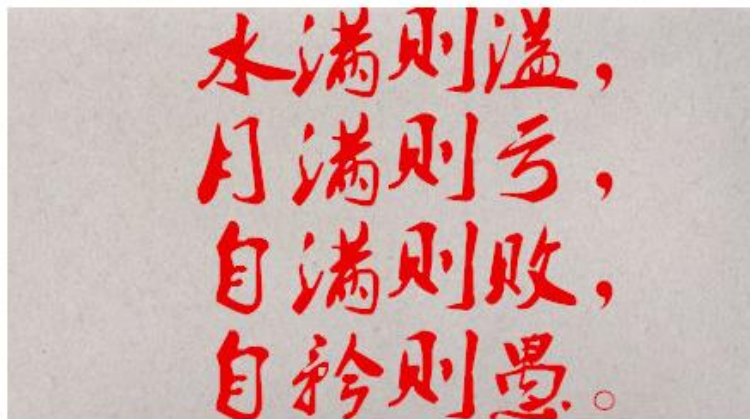 水满则溢，
月满则亏，
自满则败，
自矜则愚。